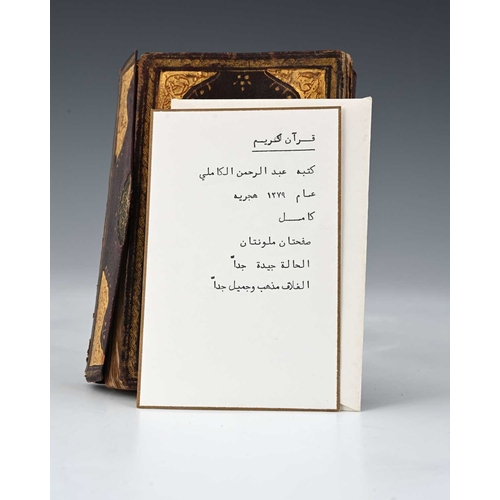 قرآن الكريم
كتبه عبد الرحمن الكاملي
عام ١٢٧٩ هجريه
كامل
صفحتان ملونتان
الحالة جيدة جداً
الغلاف مذهب وجميل جداً